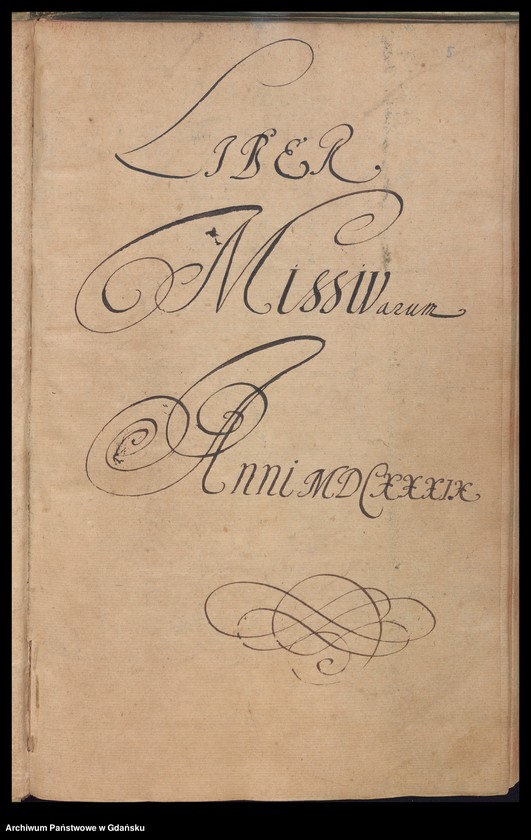 5
LIBER
Missivarum
Anni MDCXXXIX
Archiwum Państwowe w Gdańsku